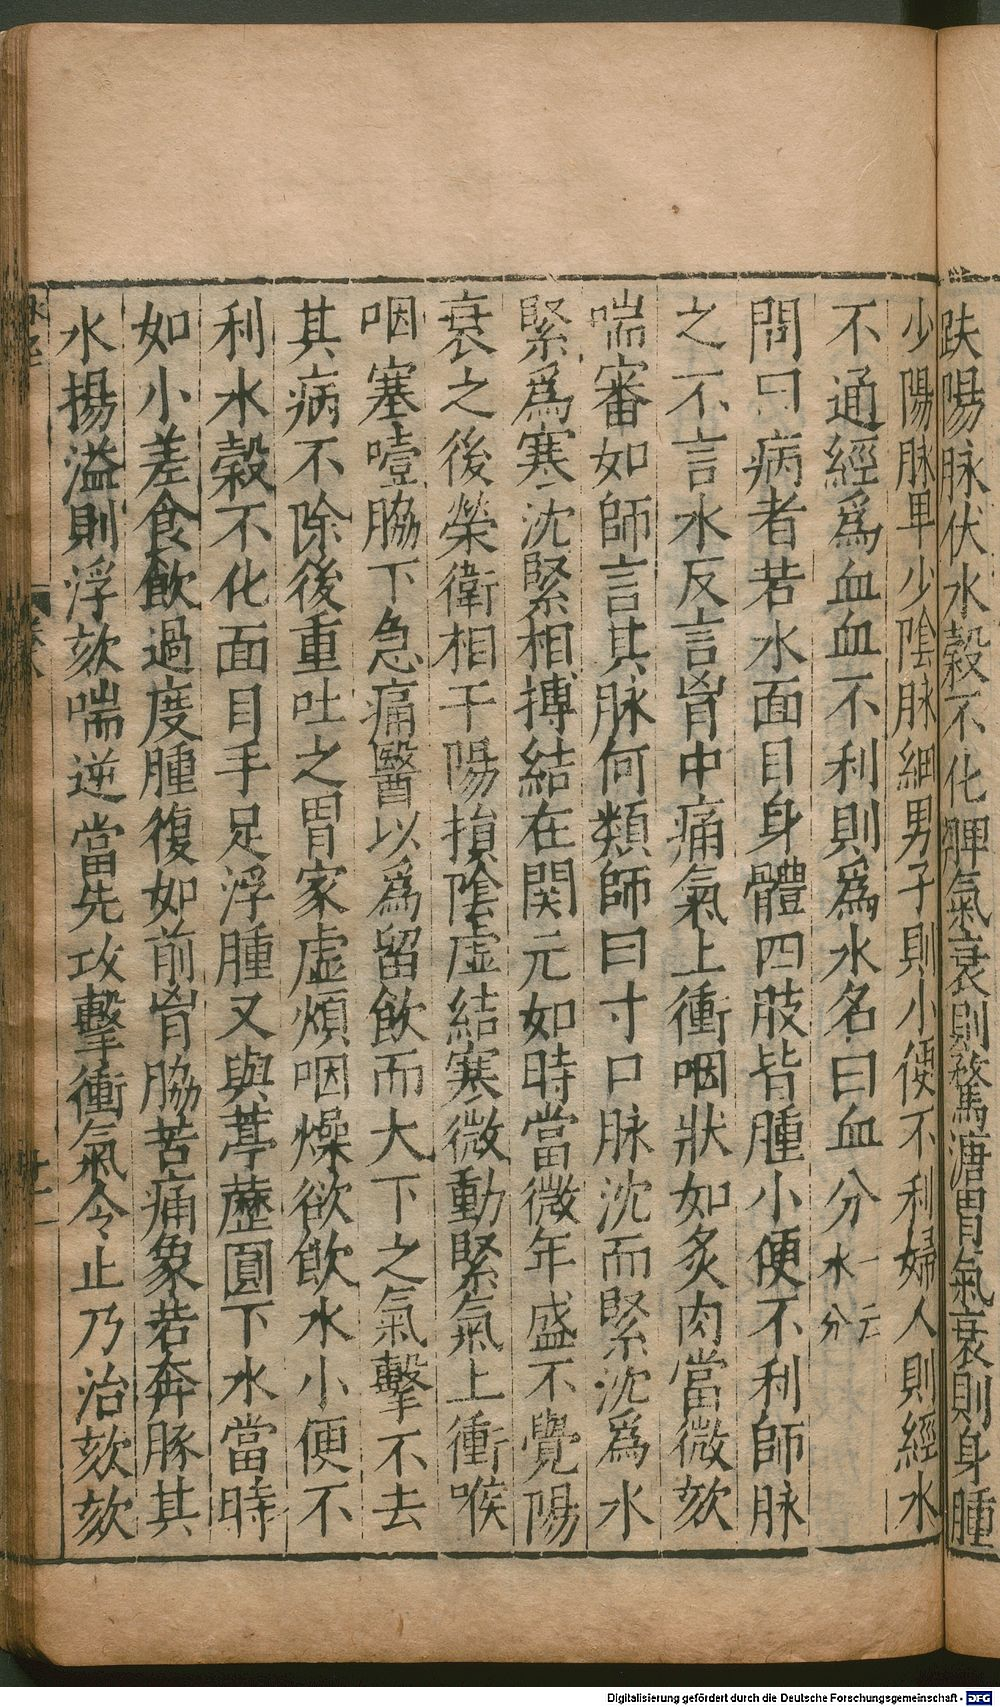 趺陽脉伏水穀不化脾氣衰則鶩溏胃氣衰則身腫
少陽脉卑少陰脉細男子則小便不利婦人則經水
不通經爲血血不利則爲水名曰血分一元水分
問曰病者若水面目身體四肢皆腫小便不利師脉
之不言水反言胷中痛氣上衝咽狀如炙肉當微欬
喘審如師言其脉何類師曰寸口脉沈而緊沈爲水
緊爲寒沈緊相搏結在関元如時當微年盛不覺陽
衰之後榮衛相干陽損陰虛結寒微動緊氣上衝喉
咽塞噎脇下急痛醫以爲留飲而大下之氣擊不去
其病不除後重吐之胃家虛煩咽燥欲飲水小便不
利水穀不化面目手足浮腫又與葶藶圓下水當時
如小差食飲過度腫復如前胷脇苦痛象若奔豚其
水揚溢則浮欬喘逆當先攻擊衝氣令止乃治欬欬
脉經
卷八
廿一
Digitalisierung gefördert durch die Deutsche Forschungsgemeinschaft - DFG